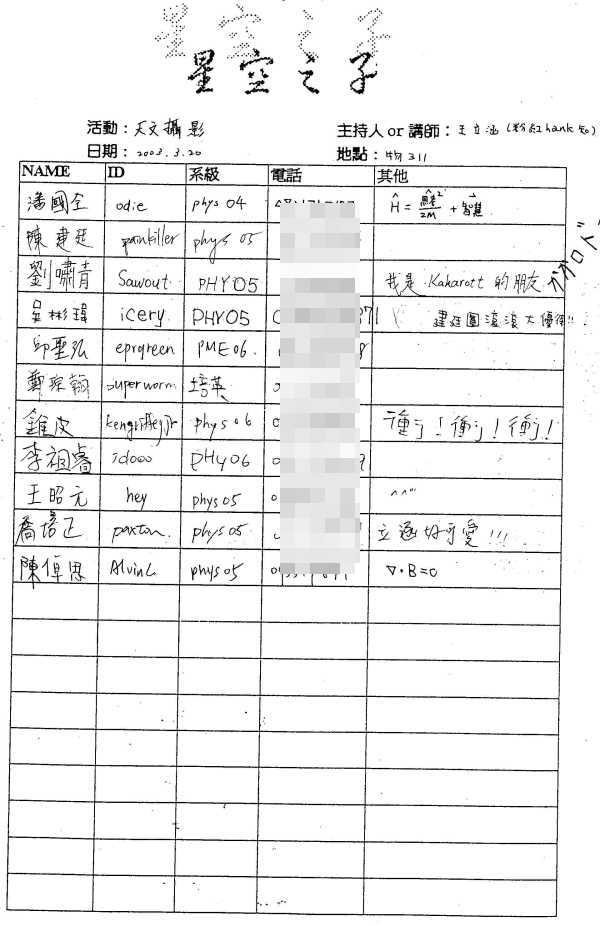 星空之子
星空之子
活動：天文攝影 主持人or講師：王立涵（粉紅hank知）
日期：2003.3.20 地點：物311
NAME ID 系級 電話 其他
潘國全 odie phys 04 Ĥ = 2M + 智慧
陳建廷 painkiller phys 05
劉嘯青 Sawout PHY05 我是 Kakarott 的朋友
吳彬瑋 icery PHY05 建廷圓滾滾大優待!!
邱聖弘 eprgreen PME06
鄭琮翰 superworm 培英
錐皮 kengriffeyjr phys 06 衝!衝!衝!
李祖睿 idooo PHY06
王昭元 hey phys05 ^^"
喬培正 paxton phys05 立涵好可愛!!!
陳倬思 AlvinL phys05 ∇·B=0